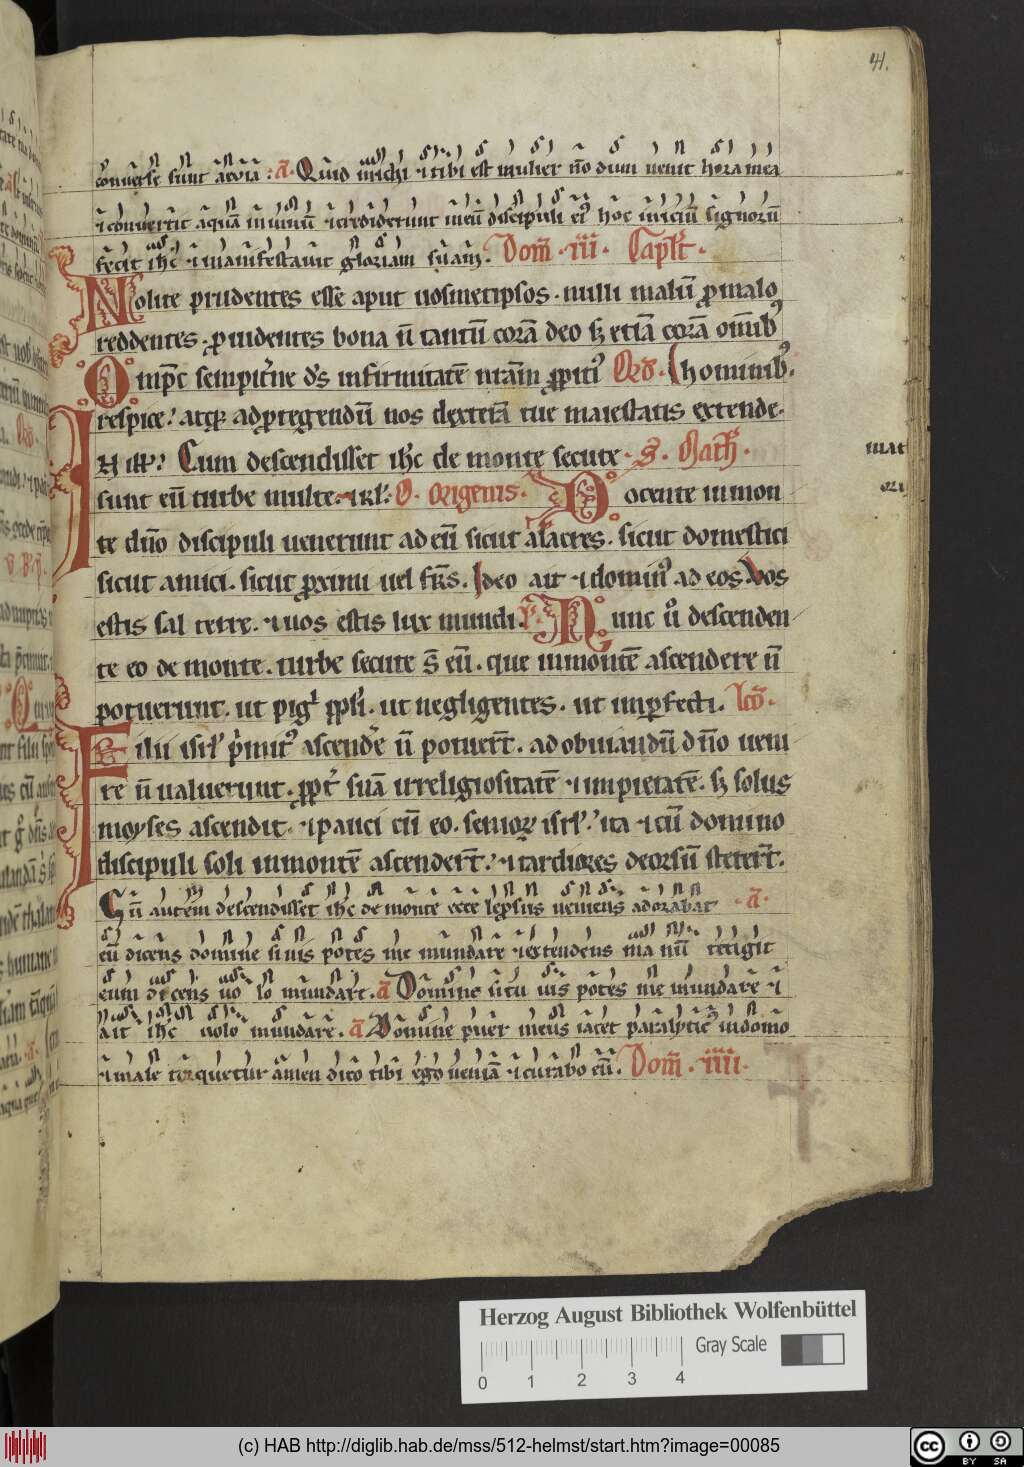 41.
conuerse sunt aeuia : a̅. Quid michi ⁊ tibi est mulier no̅ dum uenit hora mea
⁊ conuertit aqua̅ in uinu̅ ⁊ crediderunt in eu̅ discipuli ei᷒ hoc iniciu̅ signoru̅
fecit ih̅c ⁊ manifestauit gloriam sua̅m. Dom̅. iii. Cap̅lt.
Nolite prudentes esse aput uosmetipsos. nulli malu̅ ꝓ malo
reddentes. ꝓuidentes bona n̅ tantu̅ cora̅ deo sꝫ etia̅ cora̅ om̅ib᷒
Omp̅c sempit̅ne d̅s infirmitate̅ n̅ra̅m ꝓpiti᷒ Or̅o. hominib᷒.
respice. atqꝫ ad ꝓtegendu̅ nos dextera̅ tue maiestatis extende.
In ill̅. Cum descendisset ih̅c de monte secute. S. Math̅.
sunt eu̅ turbe multe. ⁊ rl̅. O. origenis. Docente in mon
mat
ori
te d̅no discipuli uenerunt ad eu̅ sicut alacres. sicut domestici
sicut amici. sicut ꝓximi uel fr̅s. Ideo ait ⁊ domin᷒ ad eos. Vos
estis sal terre. ⁊ uos estis lux mundi. R̅. Nunc u̅ descenden
te eo de monte. turbe secute s̅ eu̅. que in monte̅ ascendere n̅
potuerunt. ut pig̅ ꝓpl̅i. ut negligentes. ut imꝑfecti. Lc̅o.
Filii isrl̅ p̅mit᷒ ascende̅ n̅ potuer̅t. ad obuiandu̅ d̅no ueni
re n̅ ualuerunt. ꝓpt̅ sua̅ irreligiositate̅ ⁊ impietate̅. sꝫ solus
moyses ascendit. ⁊ pauci cu̅ eo. senioꝝ isrl̅. ita ⁊ cu̅ domino
discipuli soli in monte̅ ascender̅t. ⁊ tardiores deorsu̅ steter̅t.
Cu̅ autem descendisset ih̅c de monte ecce leprosus ueniens adorabat a̅.
eu̅ dicens domine si uis potes me mundare ⁊ extendens manu̅ tetigit
eum dicens uolo mundare. a̅ Domine si tu uis potes me mundare ⁊
ait ih̅c uolo mundare. a̅ Domine puer meus iacet paralytic᷒ in domo
⁊ male torquetur amen dico tibi ego uenia̅ ⁊ curabo eu̅. Dom̅. iiii.
Herzog August Bibliothek Wolfenbüttel
Gray Scale
0 1 2 3 4
(c) HAB http://diglib.hab.de/mss/512-helmst/start.htm?image=00085
cc BY SA